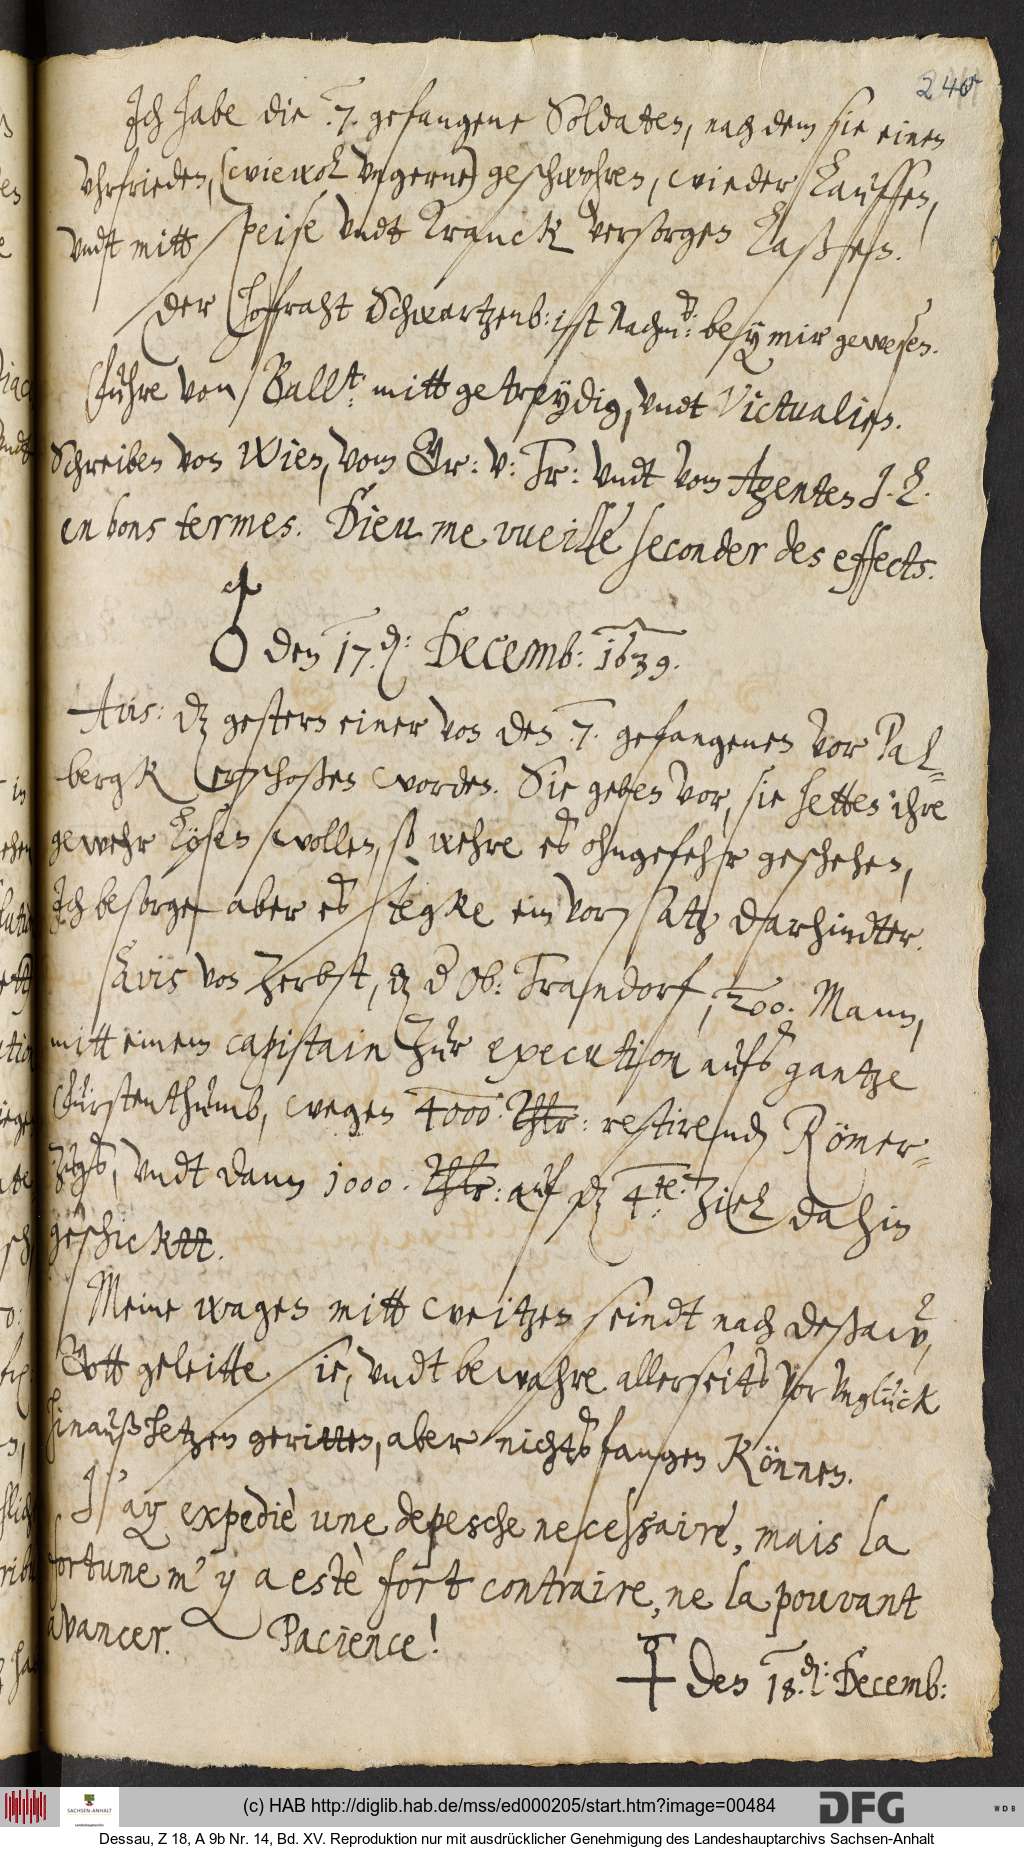 240r
Ich habe die .7. gefangene Soldaten, nach dem sie einen
Vhrfrieden, (wiewol vngerne) geschwohren, wieder lauffen,
vndt mitt speise vndt tranck versorgen laßen.
Der Hoffraht Schwartzenb: ist Nachm: bey mir gewesen.
Fuhre von Ballt: mitt getreydig, vndt Victualien.
Schreiben von Wien, vom Gr: v: Tr: vndt vom Agenten J. L.
en bons termes. Dieu me vueille seconder des effects.
♂ den 17.d: Decemb: 1639.
Avis: dz gestern einer von den .7. gefangenen vor Pal-
bergk erschoßen worden. Sie geben vor, sie hetten ihre
gewehr lösen wollen, so wehre es ohngefehr geschehen,
Ich besorge aber es stegke ein vorsatz darhindter.
Avis von Zerbst, dz d Ob: Trandorf, 200. Mann,
mitt einem capitain zur execution aufs gantze
Fürstenthumb, wegen 4000 Thlr: restirend Römer-
zugs, vndt dann 1000. Thlr: auf dz 4te: ziel dahin
geschickt.
Meine wagen mitt weitzen seindt nach Deßaw,
Gott geleitte sie, vndt bewahre allerseits vor vnglück
Hinauß hetzen geritten, aber nichts fangen können.
J'ay expediè une depesche necessaire, mais la
fortune m'y a estè fort contraire, ne la pouvant
avancer. Pacience!
☿ den 18.d: Decemb:
(c) HAB http://diglib.hab.de/mss/ed000205/start.htm?image=00484
SACHSEN-ANHALT
DFG
WDB
Dessau, Z 18, A 9b Nr. 14, Bd. XV. Reproduktion nur mit ausdrücklicher Genehmigung des Landeshauptarchivs Sachsen-Anhalt